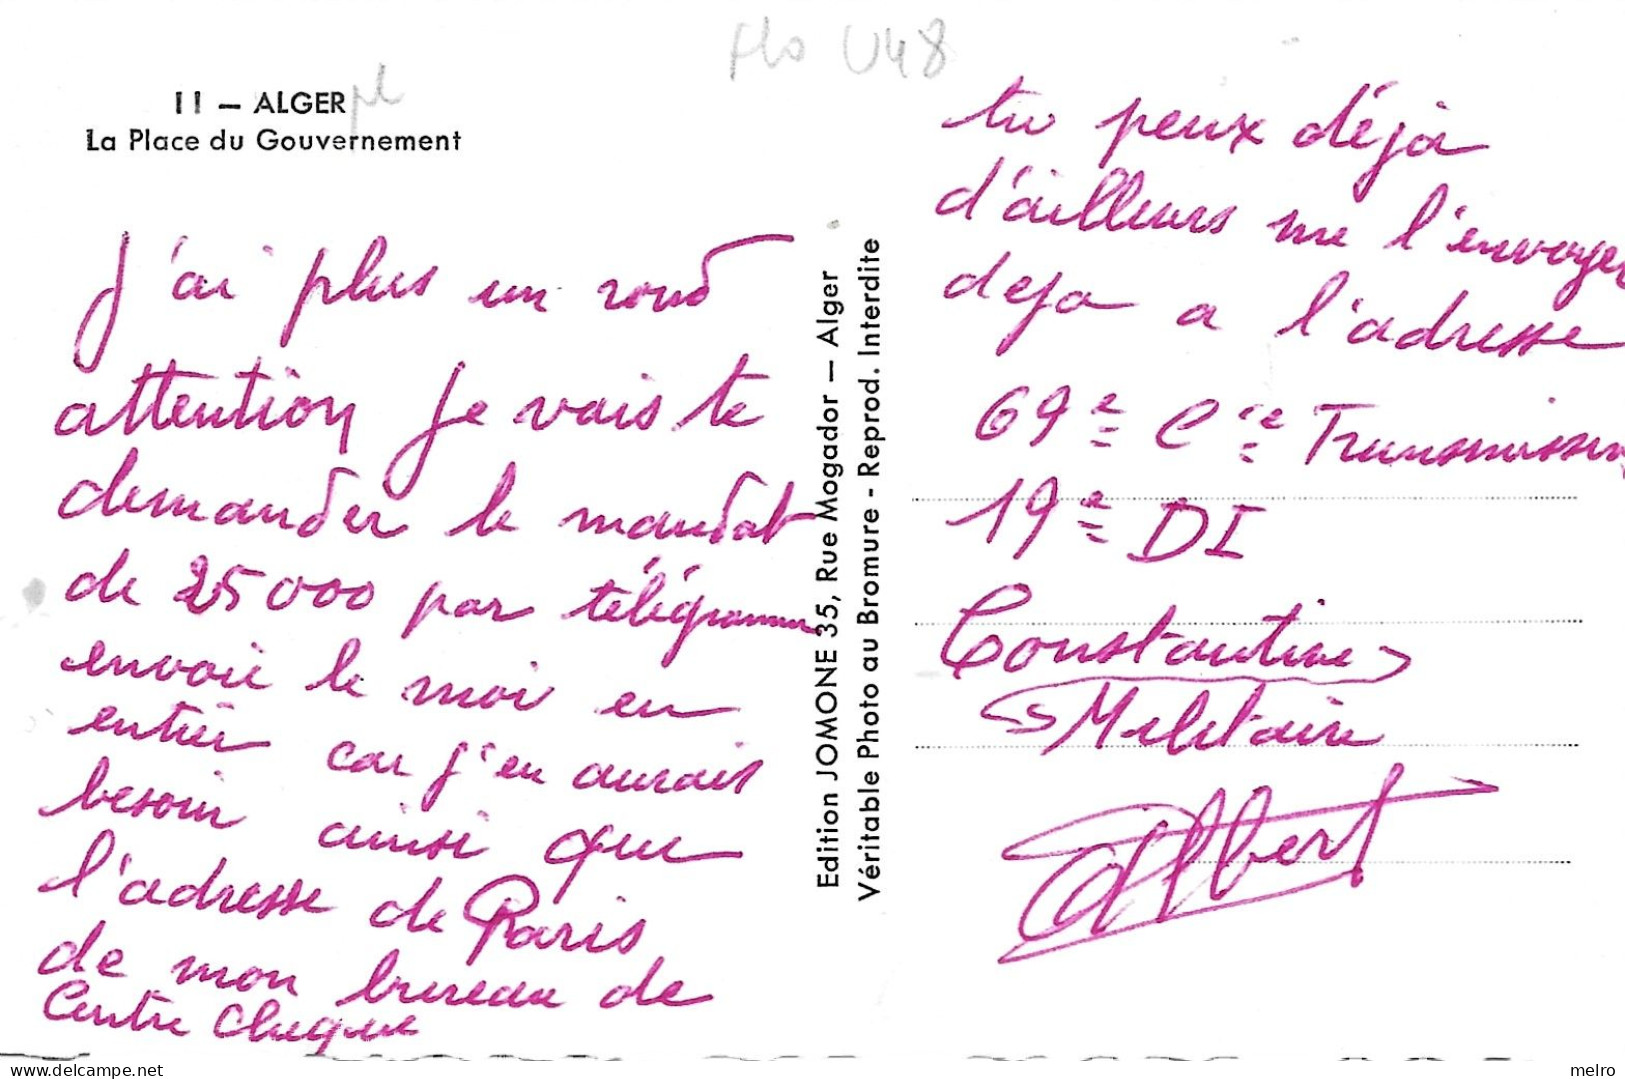 Flo U48
11 – ALGER
La Place du Gouvernement
j'ai plus un rond
attention je vais te
demander le mandat
de 25000 par télégramme
envoie le moi en
entier car j'en aurais
besoin ainsi que
l'adresse de Paris
de mon bureau de
Centre Cheque
Edition JOMONE 35, Rue Mogador — Alger
Véritable Photo au Bromure - Reprod. Interdite
tu peux déjà
d'ailleurs me l'envoyer
deja a l'adresse
69e Cie Transmission
19e DI
Constantine
Militaire
Albert
melro